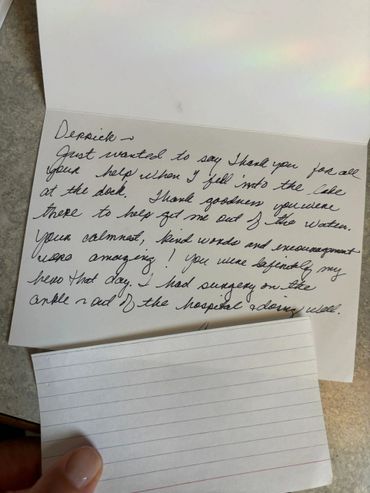 Derrick ~
Just wanted to say Thank you for all
your help when I fell into the Lake
at the dock. Thank goodness you were
there to help get me out of the water.
Your calmness, kind words and encouragement
were amazing! You were definitely my
hero that day. I had surgery on the
ankle & out of the hospital & doing well.